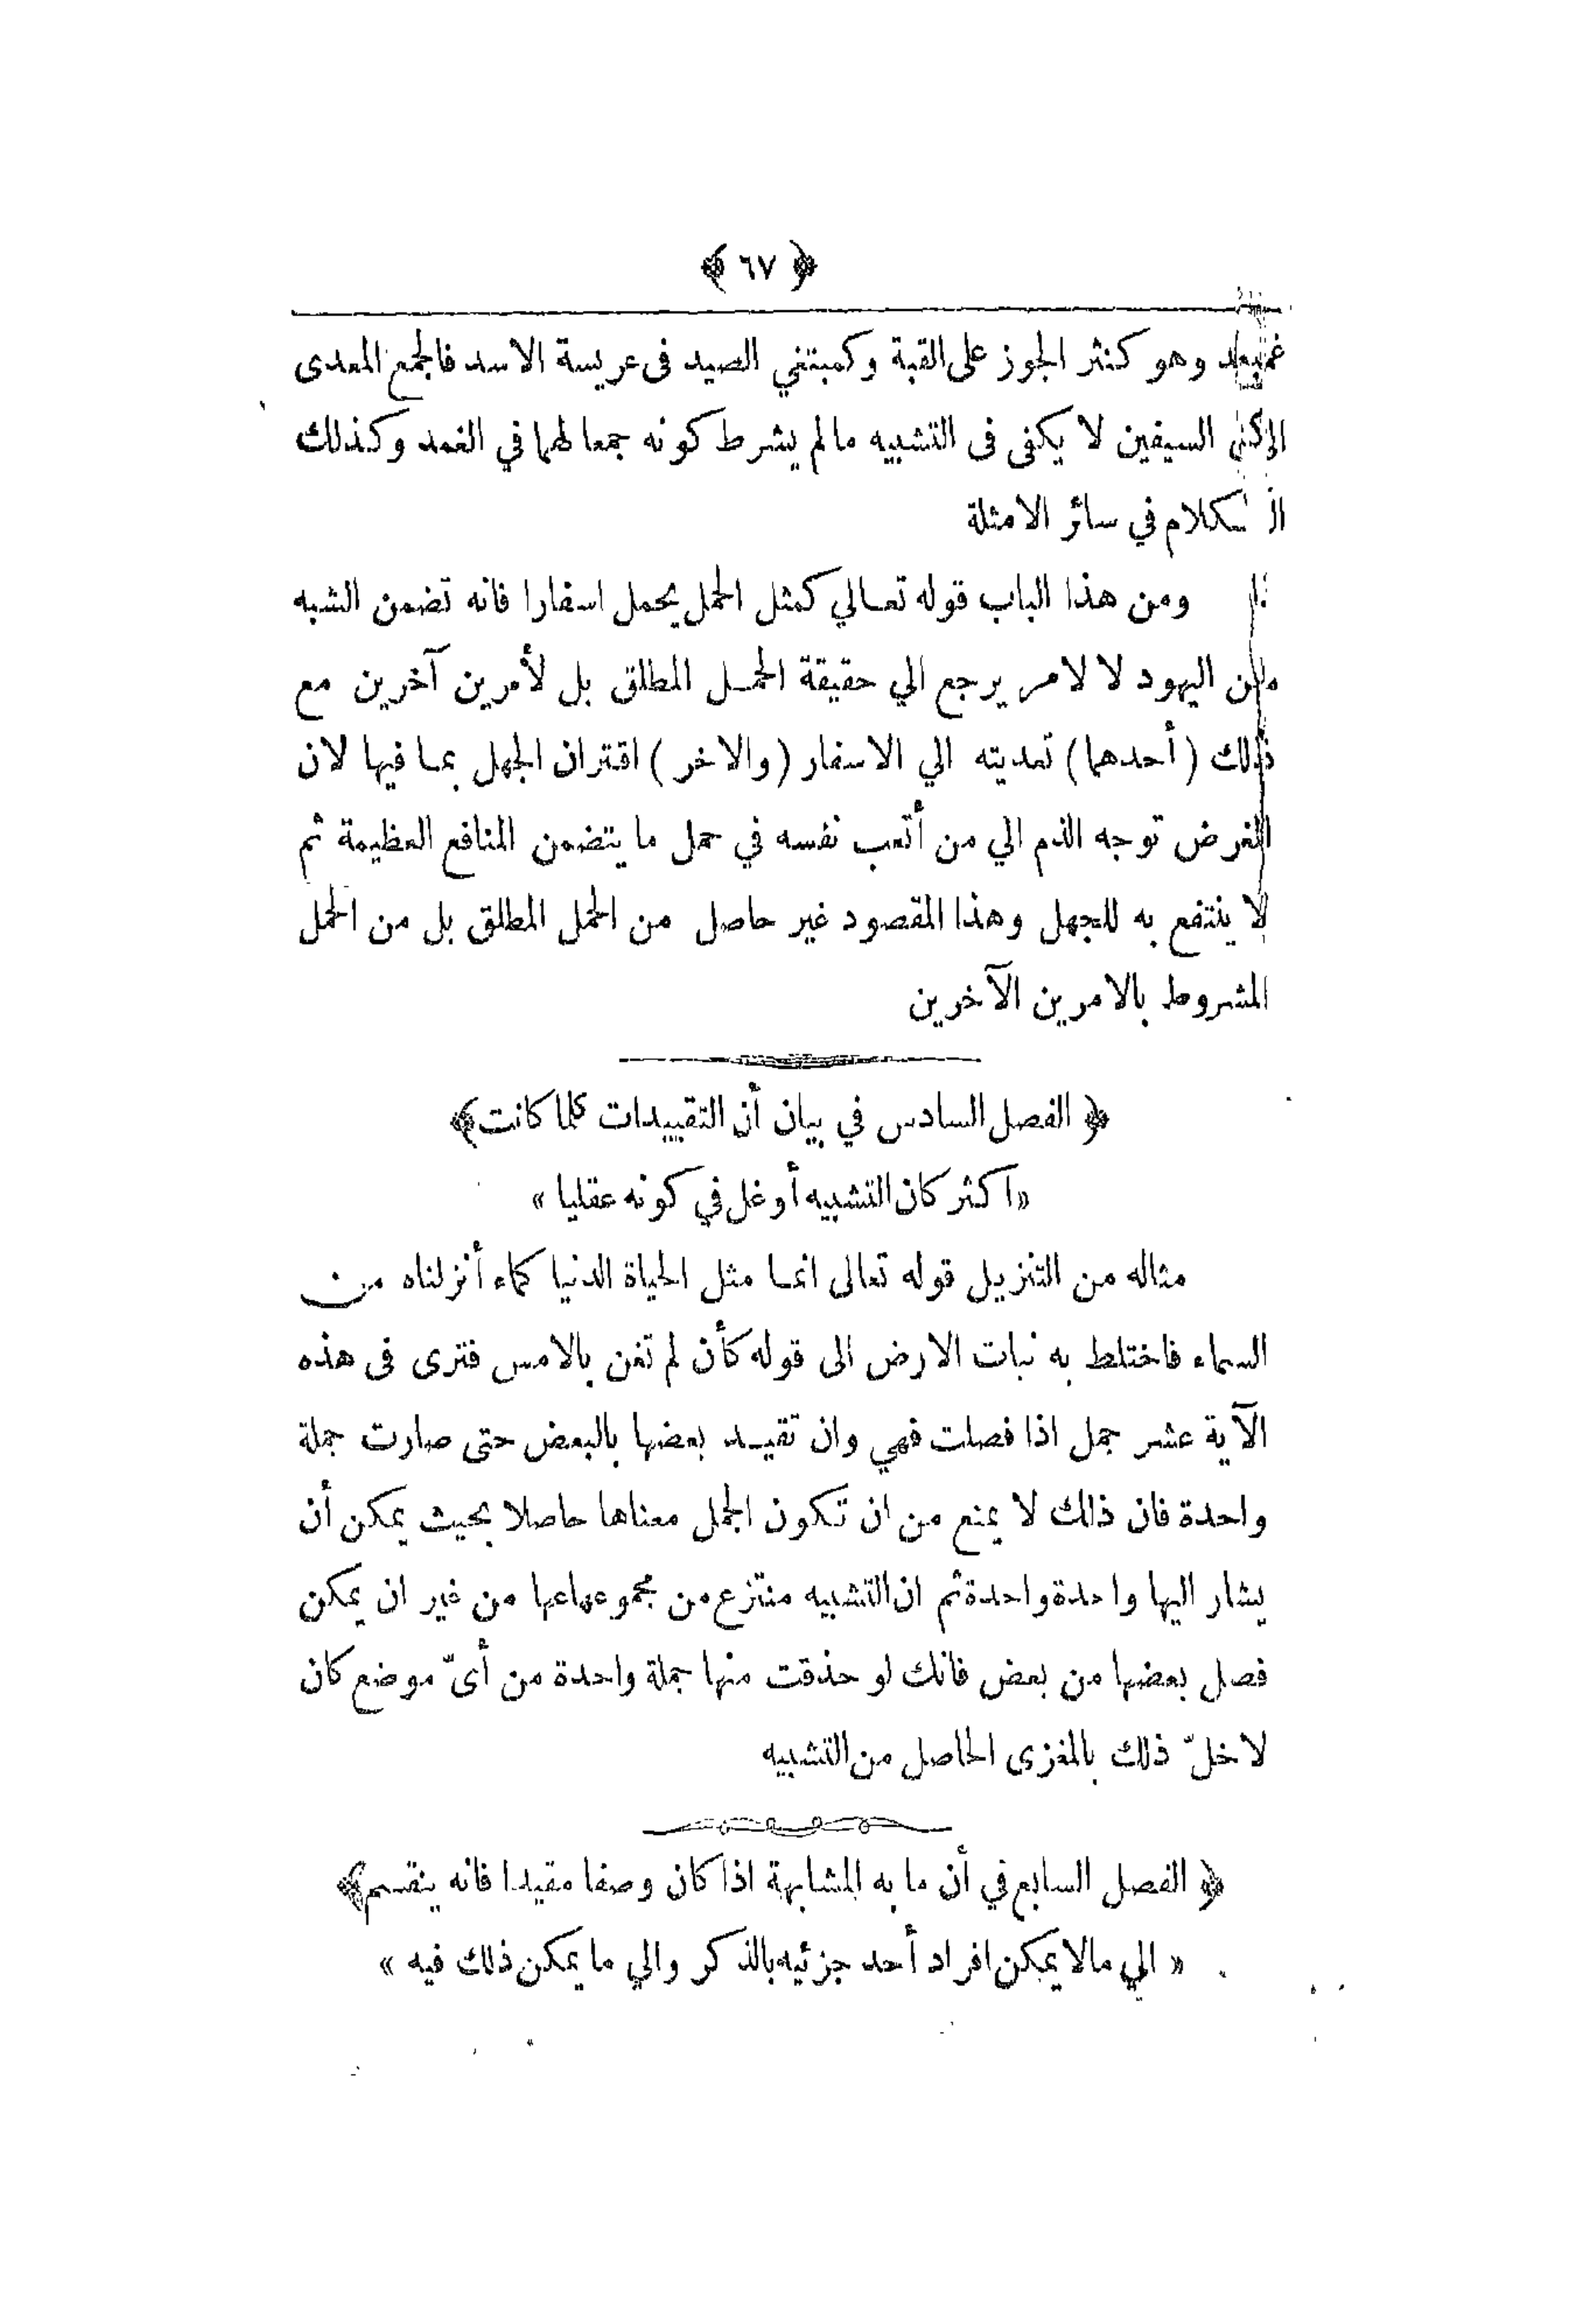 ﴿ ٦٧ ﴾
وهو كنثر الجوز على القبة وكمبتغي الصيد فى عريسة الاسد فالجمع المعدى
السيفين لا يكفى فى التشبيه مالم يشرط كونه جمعا لهما في الغمد وكذلك
الكلام في سائر الامثلة
ومن هذا الباب قوله تعالي كمثل الحمل يحمل اسفارا فانه تضمن الشبه
من اليهود لا لامر يرجع الي حقيقة الحمل المطلق بل لأمرين آخرين مع
ذلك (أحدهما) تعديته الي الاسفار (والاخر) اقتران الجهل بما فيها لان
الغرض توجه الذم الي من أتعب نفسه في حمل ما يتضمن المنافع العظيمة ثم
لا ينتفع به للجهل وهذا المقصود غير حاصل من الحمل المطلق بل من الحمل
المشروط بالامرين الآخرين
﴿ الفصل السادس في بيان أن التقييدات كلما كانت ﴾
«اكثر كان التشبيه أوغل في كونه عقليا»
مثاله من التنزيل قوله تعالى انما مثل الحياة الدنيا كماء أنزلناه من
السماء فاختلط به نبات الارض الى قوله كأن لم تغن بالامس فترى فى هذه
الآية عشر جمل اذا فصلت فهي وان تقيد بعضها بالبعض حتى صارت جملة
واحدة فان ذلك لا يمنع من ان تكون الجمل معناها حاصلا بحيث يمكن أن
يشار اليها واحدة واحدة ثم ان التشبيه منتزع من من غير ان يمكن
فصل بعضها من بعض فانك لو حذقت منها جملة واحدة من أىّ موضع كان
لاخلّ ذلك بالمغزى الحاصل من التشبيه
﴿ الفصل السابع في أن ما به المشابهة اذا كان وصفا مقيدا فانه ينقسم ﴾
« الي مالا يمكن افراد أحد جزئيه بالذكر والي ما يمكن ذلك فيه »